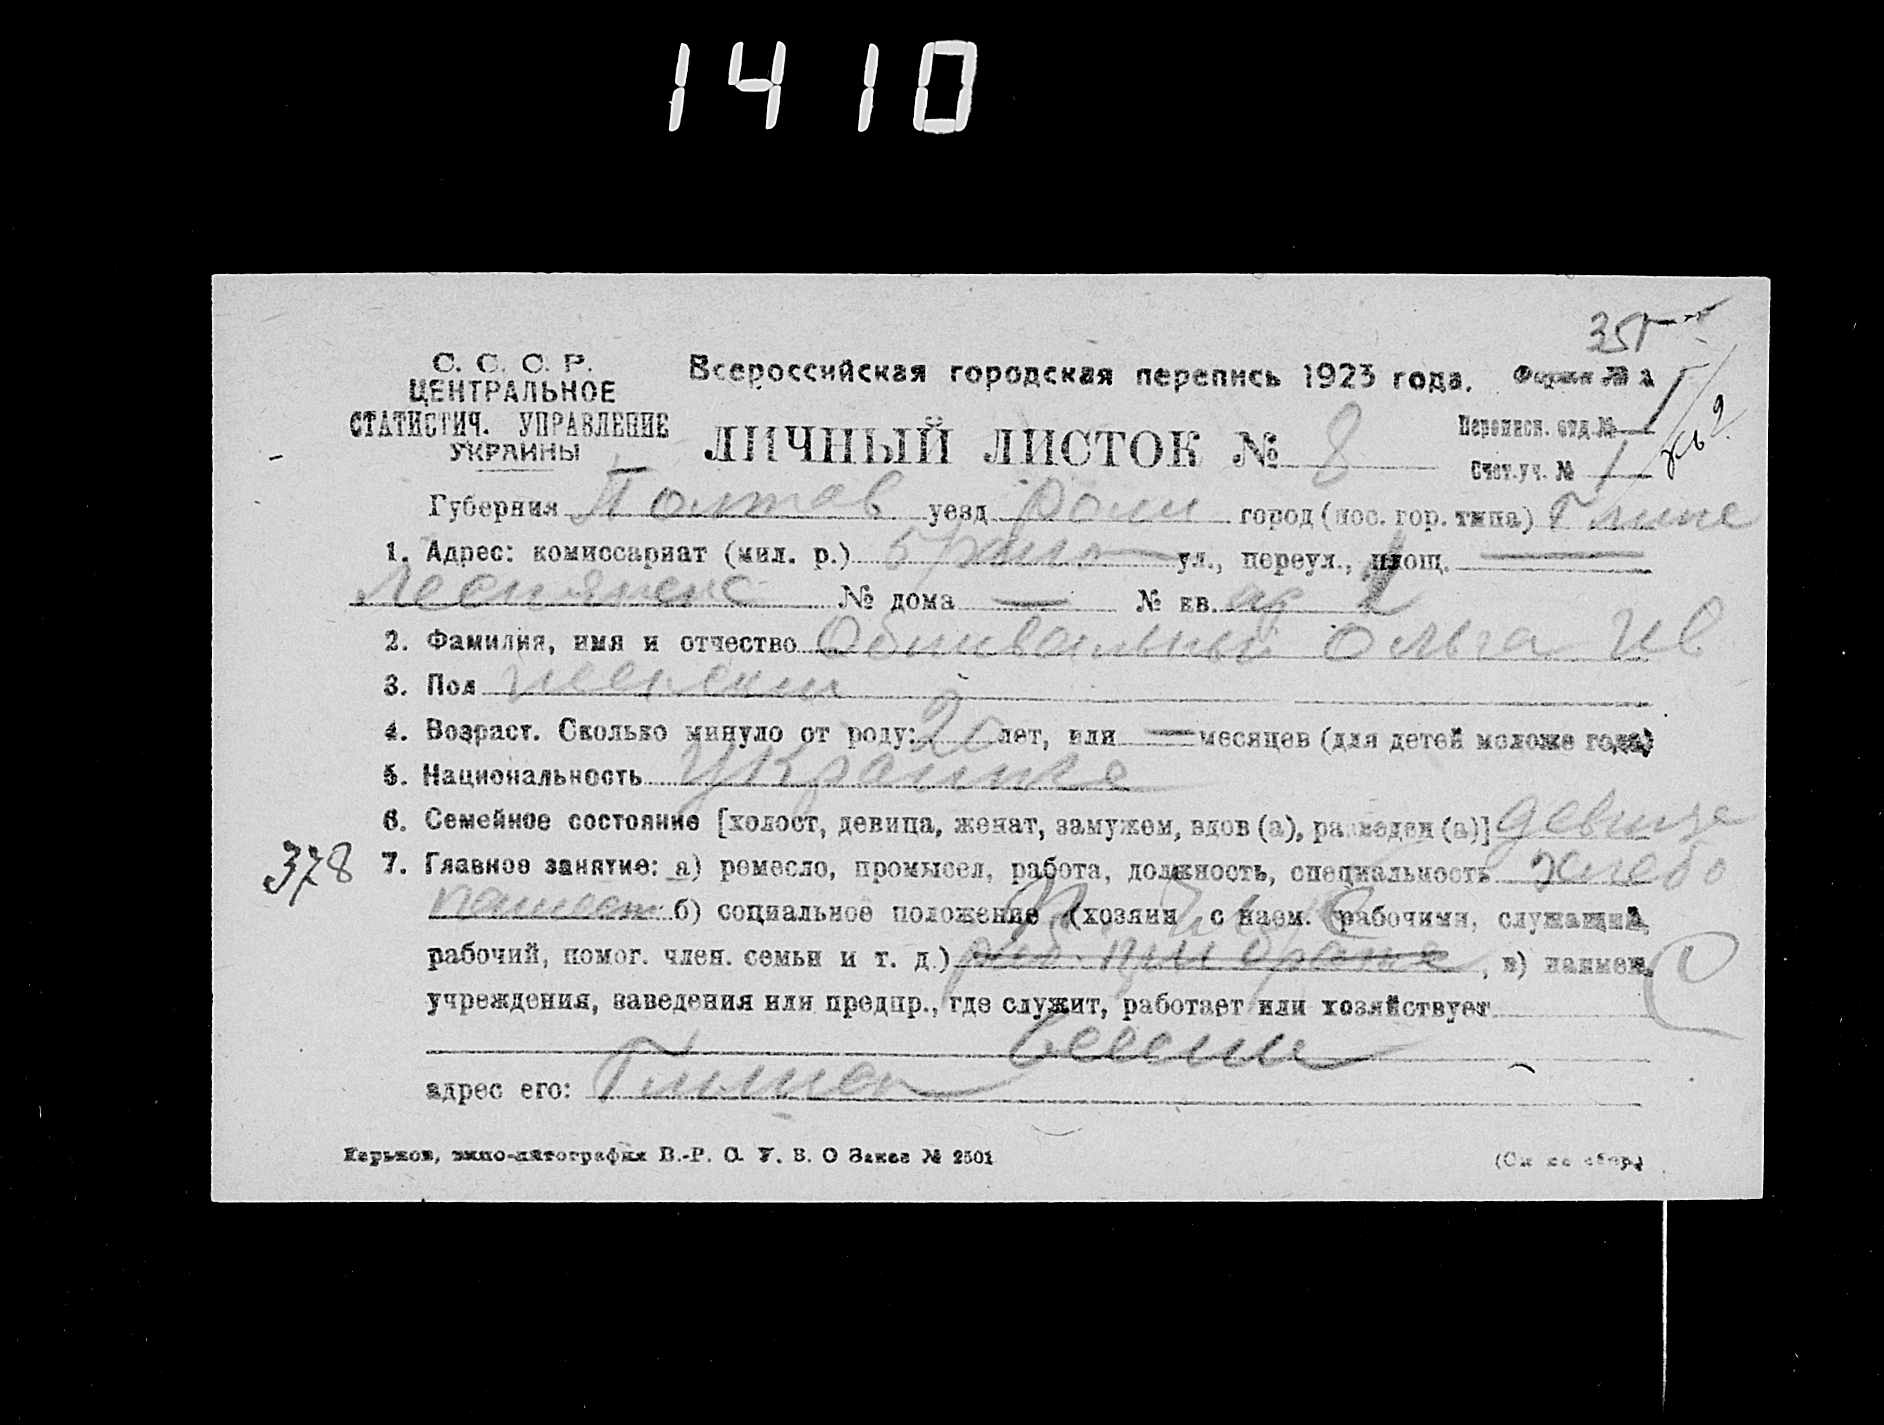 1410
355
С. С. С. Р.
ЦЕНТРАЛЬНОЕ
СТАТИСТИЧ. УПРАВЛЕНИЕ
УКРАИНЫ
Всероссийская городская перепись 1923 года.
Форма № 2
ЛИЧНЫЙ ЛИСТОК № 8
Переписн. отд. № 1
Счет. уч. № 1
Губерния Полтав уезд Ромн город (пос. гор. типа) Глинс
1. Адрес: комиссариат (мил. р.) ул., переул., площ. —
№ дома — № кв.
2. Фамилия, имя и отчество Ольга Ив
3. Пол женский
4. Возраст. Сколько минуло от роду: 20 лет, или — месяцев (для детей моложе года)
5. Национальность Украинка
6. Семейное состояние [холост, девица, женат, замужем, вдов (а), разведен (а)] девица
378 7. Главное занятие: а) ремесло, промысел, работа, должность, специальность хлебо
пашест б) социальное положение (хозяин с наем. рабочими, служащий,
рабочий, помог. член. семьи и т. д.) при брате, в) наимен.
учреждения, заведения или предпр., где служит, работает или хозяйствует
адрес его: Глинск
Харьков, типо-литография В.-Р. С. У. В. О Заказ № 2501
(См на обор.)